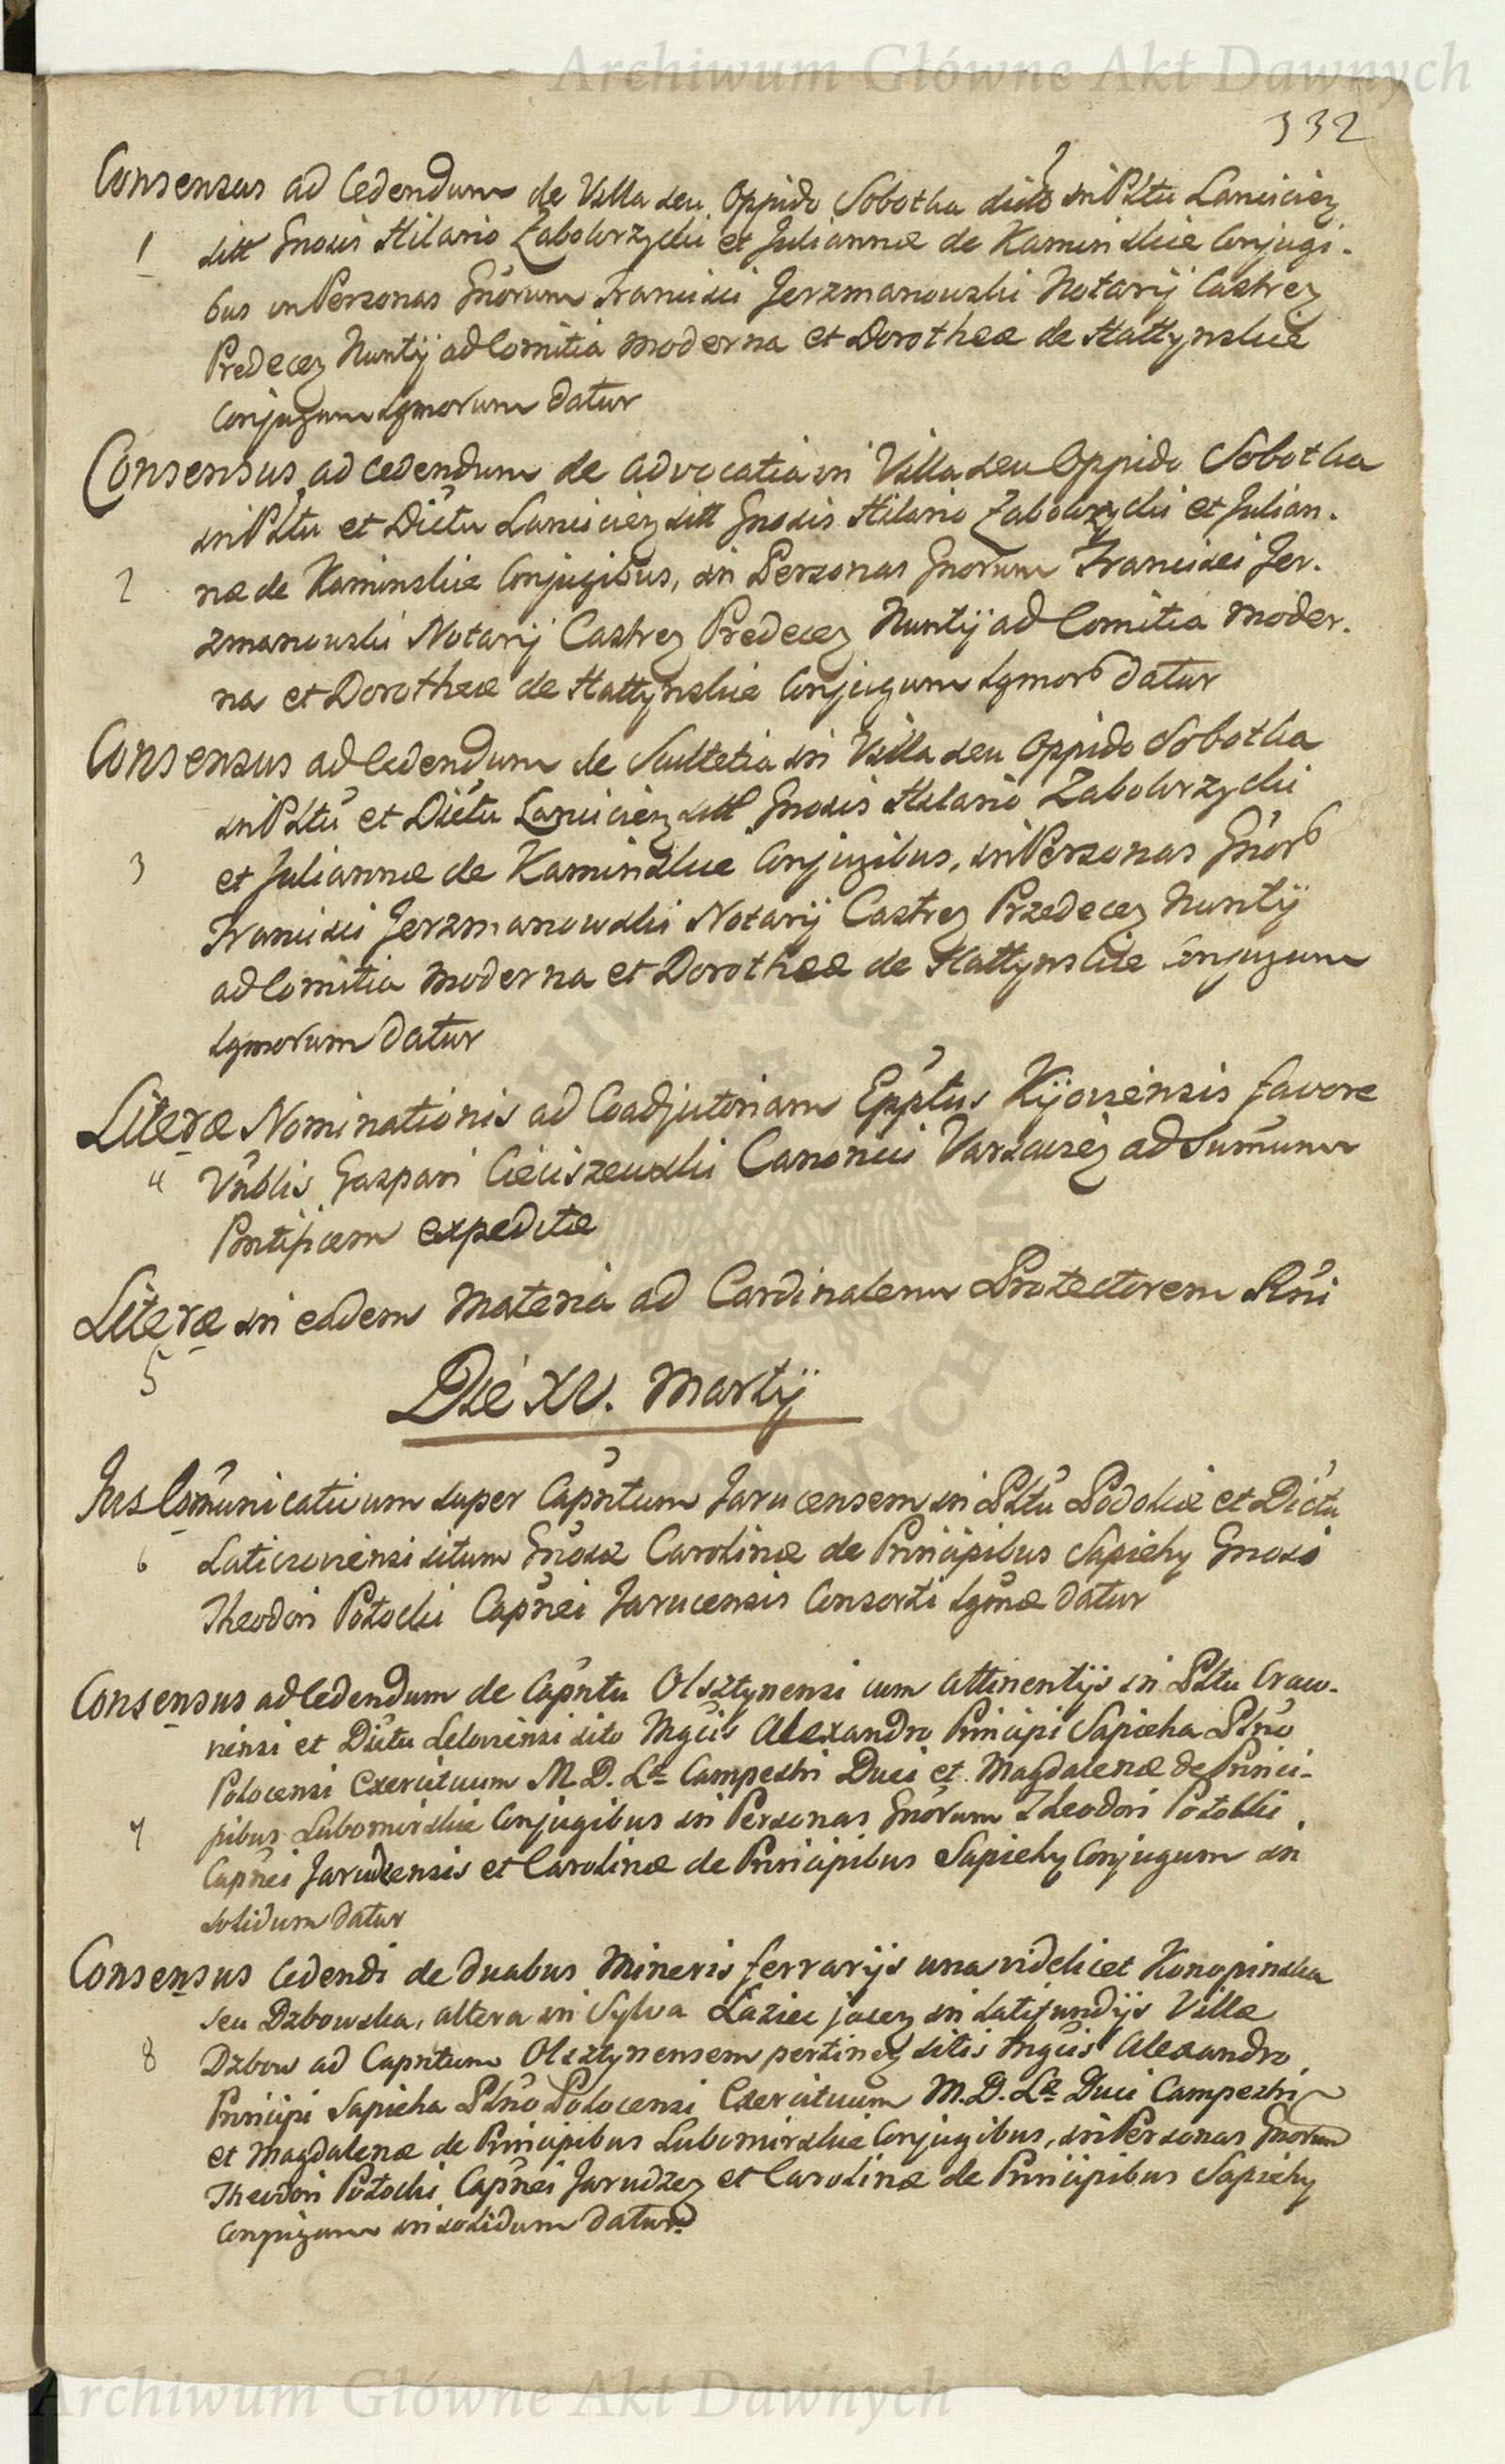 Archiwum Główne Akt Dawnych
332
Consensus ad Cedendum de Villa seu Oppido Sobotha dicto in Pltu Lancicien
1 sitt Gnosis Hilario Zaborzycki et Juliannæ de Kaminskie Conjugi-
bus in Personas Gnorum Francisci Jerzmanowski Notarij Castren
Predecen Nuntij ad Comitia moderna et Dorotheæ de Hattynskie
Conjugum Igmorum datur
Consensus ad cedendum de advocatia in Villa seu Oppido Sobotha
in Pltu et Dictu Lancicien sitt Gnosis Hilario Zaborzycki et Julian-
2 næ de Kaminskie Conjugibus, in Personas Gnorum Francisci Jer-
zmanowski Notarij Castren Predecen Nuntij ad Comitia moder-
na et Dorotheæ de Hattynskie Conjugum Igmor datur
Consensus ad Cedendum de Scultetia in Villa seu Oppido Sobotha
in Pltu et Dictu Lancicien sitt Gnosis Hilario Zaborzycki
3 et Juliannæ de Kaminskie Conjugibus, in Personas Gnor
Francisci Jerzmanowski Notarij Castren Przedecen Nuntij
ad Comitia moderna et Dorotheæ de Hattynskie Conjugum
Igmorum datur
Literæ Nominationis ad Coadjutoriam Epptus Kijoviensis favore
4 Vnblis Gaspari Cieciszewski Canonici Varsavien ad Sumum
Pontificem expeditæ
Literæ in eadem materia ad Cardinalem Protectorem Rni
5
Die XV. Martij
Jus Comunicativum super Capntum Jarucensem in Pltu Podoliæ et Dictu
6 Laticzoviensi situm Gnosæ Carolinæ de Principibus Sapiehy Gnosi
Theodori Potocki Capnei Jarucensis Consorti Igmæ datur
Consensus ad Cedendum de Capntu Olsztynensi cum attinentijs in Pltu Craco-
viensi et Dictu Leloviensi sito Mgcis Alexandro Principi Sapieha Plno
Polocensi Exercituum M. D. L. Campestri Duci et Magdalenæ de Princi-
7 pibus Lubomirskie Conjugibus in Personas Gnorum Theodori Potocki
Capnei Jarudzensis et Carolinæ de Principibus Sapiehy Conjugum in
solidum datur
Consensus Cedendi de duabus Mineris ferrarijs una videlicet Konopinska
seu Dzbowska, altera in Sylva Laziec jacen in latifundijs Villæ
8 Dzbow ad Capntum Olsztynensem pertinen sitis Mgcis Alexandro
Principi Sapieha Plno Polocensi Exercituum M. D. L. Duci Campestri
et Magdalenæ de Principibus Lubomirskie Conjugibus, in Personas Gnorum
Theodori Potocki Capnei Jarudzen et Carolinæ de Principibus Sapiehy
Conjugum in solidum datur
Archiwum Główne Akt Dawnych